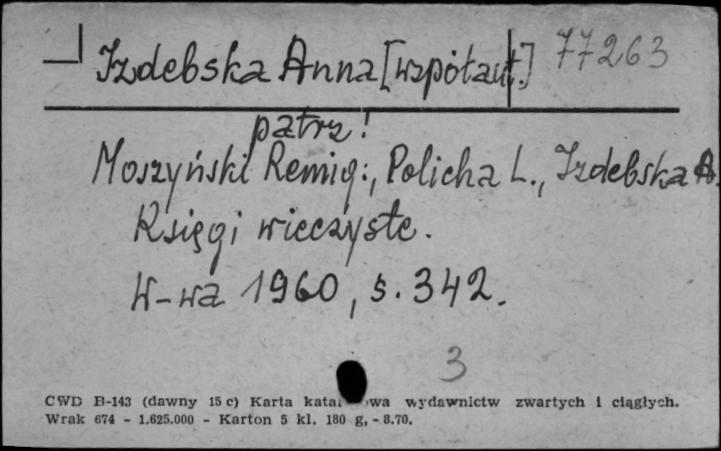 Izdebska Anna [współaut.] 77263
patrz:
Moszyński Remig:, Policha L., Izdebska A.
Księgi wieczyste.
W-wa 1960, s. 342.
3
CWD B-143 (dawny 15 c) Karta kata wa wydawnictw zwartych i ciągłych.
Wrak 674 - 1.625.000 - Karton 5 kl. 180 g, - 8.70.